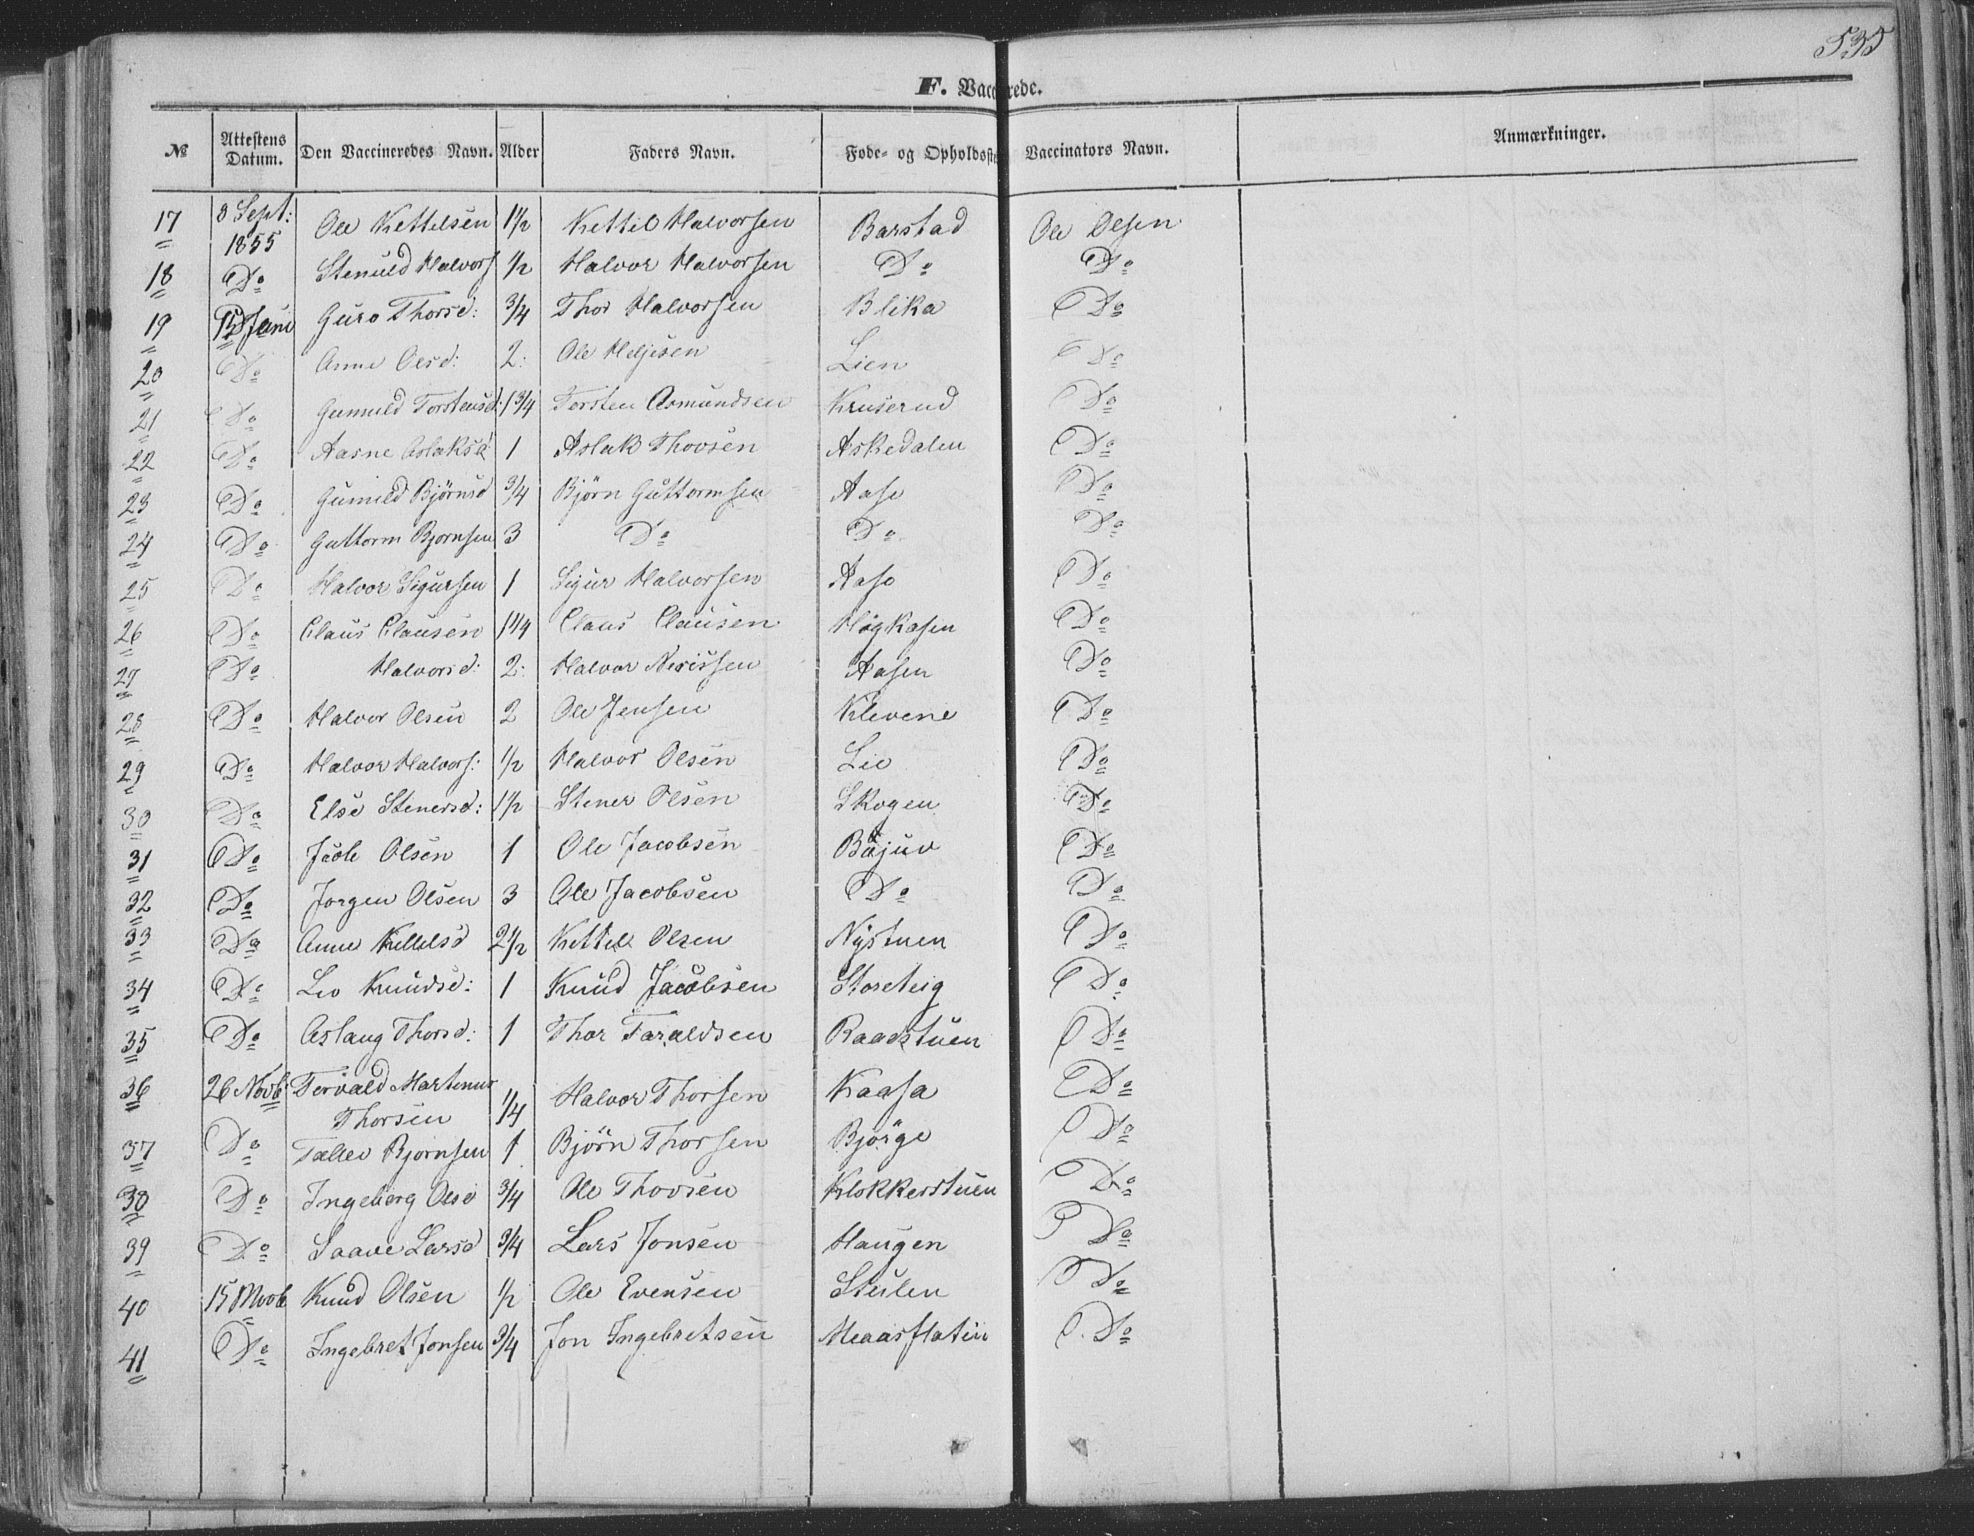 535
F. Vaccinerede.
№ | Attestens Datum. | Den Vaccineredes Navn. | Alder | Faders Navn. | Føde- og Opholdsste | Vaccinators Navn. | Anmærkninger.
17 | 3 Sept: 1855 | Ole Kettelsen | 1 1/2 | Kettil Halvorsen | Barstad | Ole Olsen
18 | Do | Halvors | 1/2 | Halvor Halvorsen | Do | Do
19 | 15 Juni | Guro Thorsd: | 3/4 | Thor Halvorsen | Blika | Do
20 | Do | Anne Olesd: | 2: | Ole Heljesen | Lien | Do
21 | Do | Gunnild Torstensd: | 1 3/4 | Torsten Asmundsen | Kruserud | Do
22 | Do | Aasne Aslaksd | 1 | Aslak Thovsen | Askedalen | Do
23 | Do | Gunild Bjørnsd | 3/4 | Bjørn Guttormsen | Aase | Do
24 | Do | Guttorm Bjornsen | 3 | Do | Do | Do
25 | Do | Halvor Sigursen | 1 | Sigur Halvorsen | Aase | Do
26 | Do | Claus Clausen | 1 1/4 | Claus Clausen | Høgkasen | Do
27 | Do | Halvorsd: | 2: | Halvor Nerissen | Aasen | Do
28 | Do | Halvor Olsen | 2 | Ole Jensen | Klevene | Do
29 | Do | Halvor Halvors: | 1/2 | Halvor Olsen | Lie | Do
30 | Do | Else Stenersd: | 1 1/2 | Stener Olsen | Skogen | Do
31 | Do | Olsen | 1 | Ole Jacobsen | Bøjuv | Do
32 | Do | Jorgen Olsen | 3 | Ole Jacobsen | Do | Do
33 | Do | Anne Kettelsd | 2 1/2 | Kettel Olsen | Nystuen | Do
34 | Do | Liv Knudsd: | 1 | Knud Jacobsen | Storeteig | Do
35 | Do | Aslaug Thorsd: | 1 | Thor Taraldsen | Raadstuen | Do
36 | 26 Novb | Torvald Martinus Thorsen | 1/4 | Halvor Thorsen | Kaasa | Do
37 | Do | Tallev Bjornsen | 1 | Bjørn Thorsen | Bjørge | Do
38 | Do | Ingeborg Olsd | 3/4 | Ole Thovsen | Klokkerstuen | Do
39 | Do | Saave Larsd | 3/4 | Lars Jonsen | Haugen | Do
40 | 15 | Knud Olsen | 1/2 | Ole Evensen | Stulen | Do
41 | Do | Ingebret Jonsen | 3/4 | Jon Ingebretsen | Meaasflatin | Do